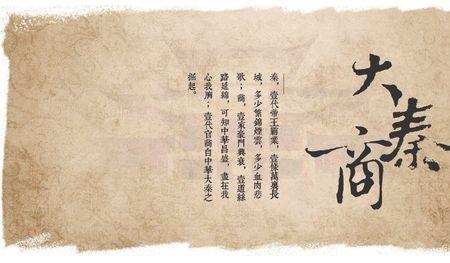 大秦一商
秦，壹代帝王霸業，壹條萬裏長
城，多少繁錦煙雲，多少血肉悲
歌；商，壹家豪門興衰，壹道絲
路延綿，可知中華昌盛，盡在我
心我胸；壹代官商自中華大秦之
掘起。